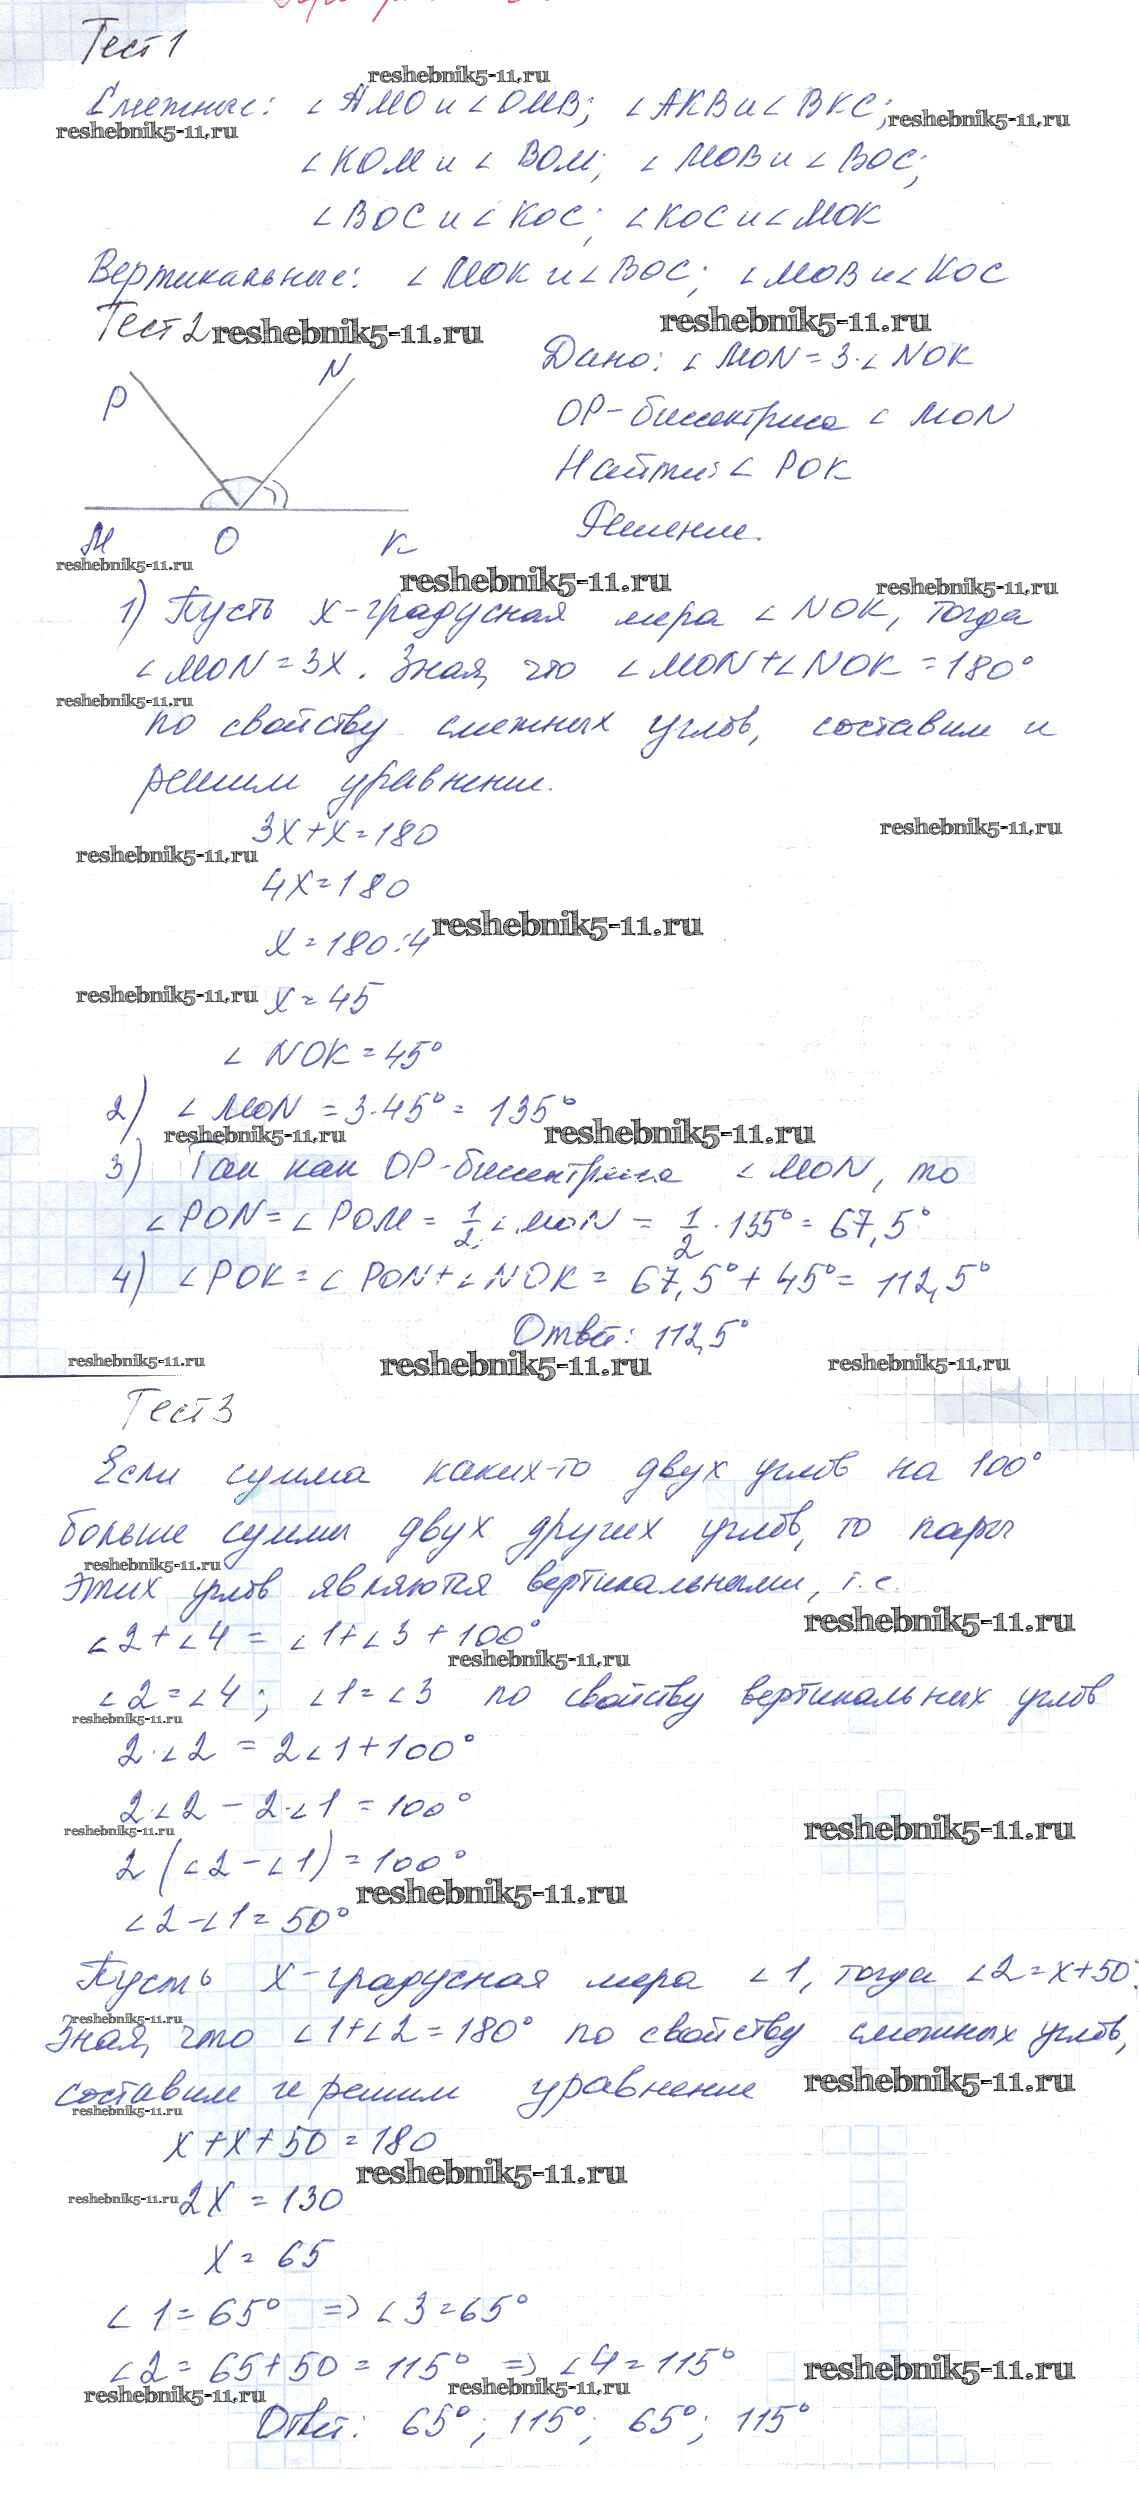 Тест 1
reshebnik5-11.ru
Смежные: ∠AMO и ∠OMB; ∠AKB и ∠BKC;
reshebnik5-11.ru
reshebnik5-11.ru
∠KOM и ∠BOM; ∠MOB и ∠BOC;
∠BOC и ∠KOC; ∠KOC и ∠MOK
Вертикальные: ∠MOK и ∠BOC; ∠MOB и ∠KOC
Тест 2
reshebnik5-11.ru
reshebnik5-11.ru
P
N
M
O
K
Дано: ∠MON = 3·∠NOK
OP-биссектриса ∠MON
Найти: ∠POK
Решение.
reshebnik5-11.ru
reshebnik5-11.ru
reshebnik5-11.ru
1) Пусть x-градусная мера ∠NOK, тогда
∠MON = 3x. Зная, что ∠MON + ∠NOK = 180°
reshebnik5-11.ru
по свойству смежных углов, составим и
решим уравнение.
3x + x = 180
reshebnik5-11.ru
reshebnik5-11.ru
4x = 180
x = 180:4
reshebnik5-11.ru
reshebnik5-11.ru
x = 45
∠NOK = 45°
2) ∠MON = 3·45° = 135°
reshebnik5-11.ru
reshebnik5-11.ru
3) Так как OP-биссектриса ∠MON, то
∠PON = ∠POM = 1/2 ∠MON = 1/2 · 135° = 67,5°
4) ∠POK = ∠PON + ∠NOK = 67,5° + 45° = 112,5°
Ответ: 112,5°
reshebnik5-11.ru
reshebnik5-11.ru
reshebnik5-11.ru
Тест 3
Если сумма каких-то двух углов на 100°
больше суммы двух других углов, то пары
reshebnik5-11.ru
этих углов являются вертикальными, т.е.
reshebnik5-11.ru
∠2 + ∠4 = ∠1 + ∠3 + 100°
reshebnik5-11.ru
∠2 = ∠4; ∠1 = ∠3 по свойству вертикальных углов
reshebnik5-11.ru
2·∠2 = 2∠1 + 100°
2·∠2 - 2·∠1 = 100°
reshebnik5-11.ru
reshebnik5-11.ru
2(∠2 - ∠1) = 100°
reshebnik5-11.ru
∠2 - ∠1 = 50°
Пусть x-градусная мера ∠1, тогда ∠2 = x + 50°.
reshebnik5-11.ru
Зная, что ∠1 + ∠2 = 180° по свойству смежных углов,
составим и решим уравнение
reshebnik5-11.ru
reshebnik5-11.ru
x + x + 50 = 180
reshebnik5-11.ru
reshebnik5-11.ru
2x = 130
x = 65
∠1 = 65° => ∠3 = 65°
∠2 = 65 + 50 = 115° => ∠4 = 115°
reshebnik5-11.ru
reshebnik5-11.ru
reshebnik5-11.ru
Ответ: 65°; 115°; 65°; 115°